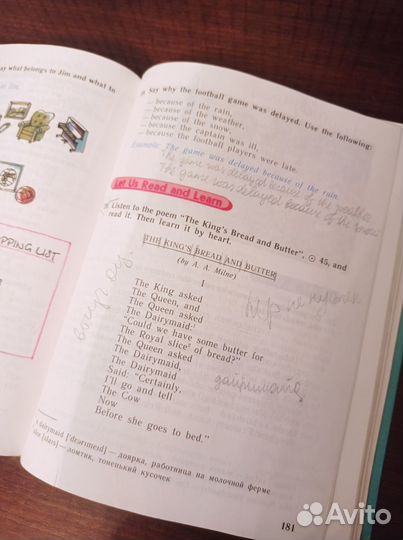 ay what belongs to Jim and what to
PPING LIST
Say why the football game was delayed. Use the following:
— because of the rain,
— because of the weather,
— because of the snow,
— because the captain was ill,
— because the football players were late.
Example: The game was delayed because of the rain.
The game was delayed because of the weather
The game was delayed because of the
Let Us Read and Learn
Listen to the poem "The King's Bread and Butter", 45, and
read it. Then learn it by heart.
THE KING'S BREAD AND BUTTER
(by A. A. Milne)
I
The King asked
The Queen, and
The Queen asked
The Dairymaid:
"Could we have some butter for
The Royal slice² of bread?"
The Queen asked
The Dairymaid,
The Dairymaid
Said: "Certainly,
I'll go and tell
The Cow
Now
Before she goes to bed."
dairymaid [ˈdɛərɪmeɪd] — доярка, работница на молочной ферме
[slaɪs] — ломтик, тоненький кусочек
181
Avito